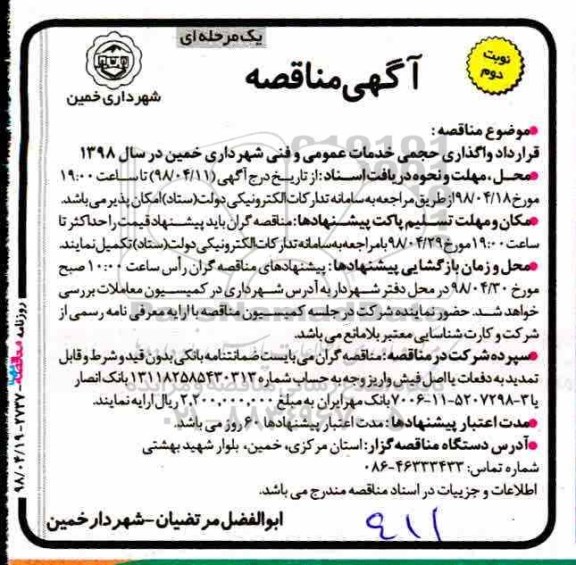 یک مرحله ای
نوبت دوم
آگهی مناقصه
شهرداری خمین
موضوع مناقصه:
قرارداد واگذاری حجمی خدمات عمومی و فنی شهرداری خمین در سال ۱۳۹۸
محل، مهلت و نحوه دریافت اسناد: از تاریخ درج آگهی (۹۸/۰۴/۱۱) تا ساعت ۱۹:۰۰
مورخ ۹۸/۰۴/۱۸ از طریق مراجعه به سامانه تدارکات الکترونیکی دولت (ستاد) امکان پذیر می باشد.
مکان و مهلت تسلیم پاکت پیشنهادها: مناقصه گران باید پیشنهاد قیمت را حداکثر تا
ساعت ۱۹:۰۰ مورخ ۹۸/۰۴/۲۹ با مراجعه به سامانه تدارکات الکترونیکی دولت (ستاد) تکمیل نمایند.
محل و زمان بازگشایی پیشنهادها: پیشنهادهای مناقصه گران رأس ساعت ۱۰:۰۰ صبح
مورخ ۹۸/۰۴/۳۰ در محل دفتر شهردار به آدرس شهرداری در کمیسیون معاملات بررسی
خواهد شد. حضور نماینده شرکت در جلسه کمیسیون مناقصه با ارایه معرفی نامه رسمی از
شرکت و کارت شناسایی معتبر بلامانع می باشد.
سپرده شرکت در مناقصه: مناقصه گران می بایست ضمانتنامه بانکی بدون قید و شرط و قابل
تمدید به دفعات یا اصل فیش واریز وجه به حساب شماره ۱۳۱۱۸۲۵۸۵۴۳۰۳۱۳ بانک انصار
یا ۳-۵۲۰۷۲۹۸-۱۱-۷۰۰۶ بانک مهر ایران به مبلغ ۲,۲۰۰,۰۰۰,۰۰۰ ریال ارایه نمایند.
مدت اعتبار پیشنهادها: مدت اعتبار پیشنهادها ۶۰ روز می باشد.
آدرس دستگاه مناقصه گزار: استان مرکزی، خمین، بلوار شهید بهشتی
شماره تماس: ۴۶۳۳۳۴۳۳-۰۸۶
اطلاعات و جزییات در اسناد مناقصه مندرج می باشد.
ابوالفضل مرتضیان - شهردار خمین
۹۱۱
روزنامه مناقصه - ۲۷۳۷ - ۹۸/۰۴/۱۹